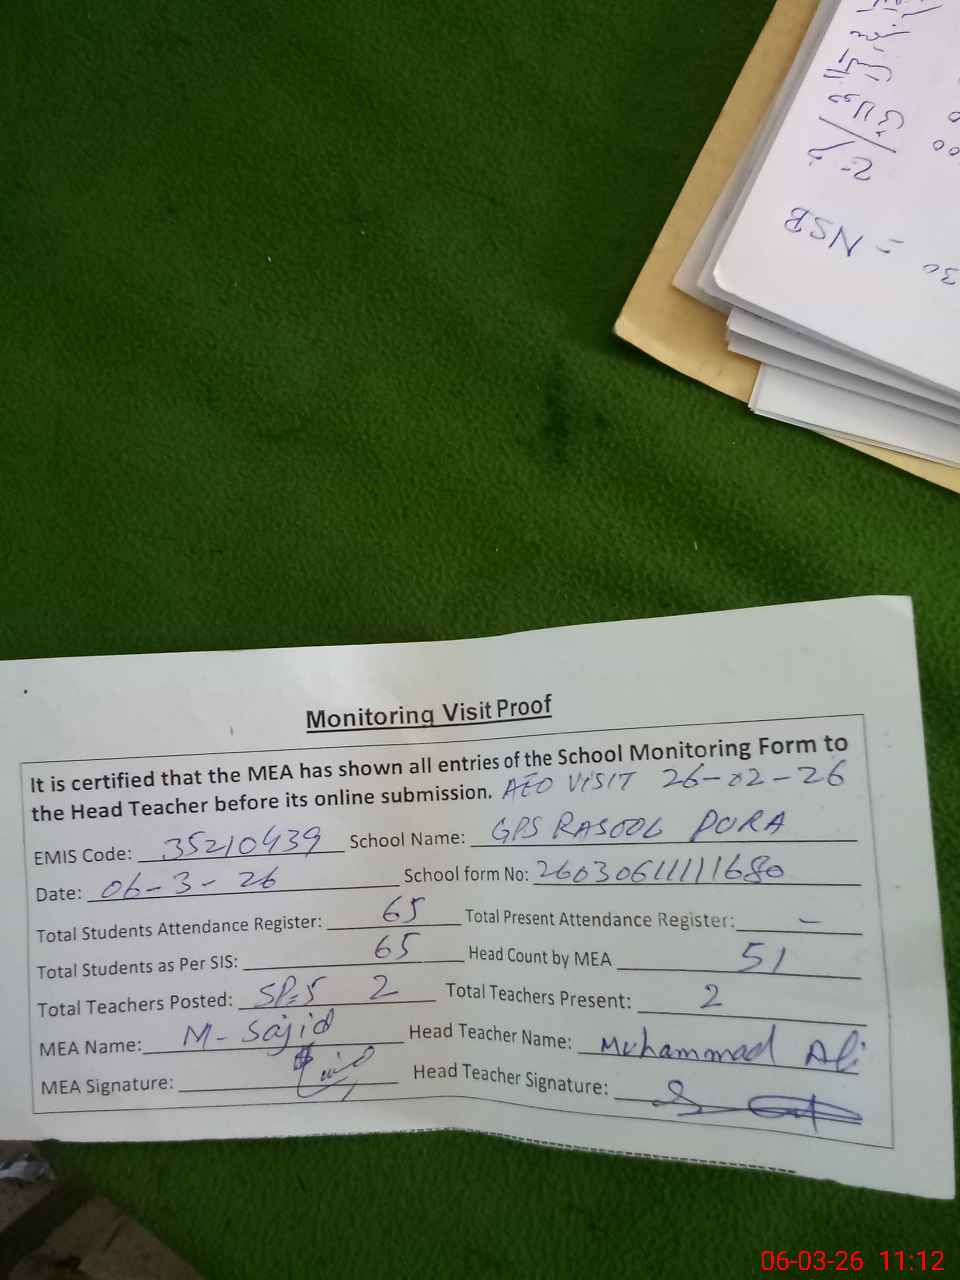 = NSB
30
Monitoring Visit Proof
It is certified that the MEA has shown all entries of the School Monitoring Form to
the Head Teacher before its online submission. AEO VISIT 26-02-26
EMIS Code: 35210439 School Name: GPS RASOOL PORA
Date: 06-3-26 School form No: 26030611111680
Total Students Attendance Register: 65 Total Present Attendance Register: -
Total Students as Per SIS: 65 Head Count by MEA 51
Total Teachers Posted: SP=5 2 Total Teachers Present: 2
MEA Name: M-Sajid Head Teacher Name: Muhammad Ali
MEA Signature: Head Teacher Signature:
06-03-26 11:12